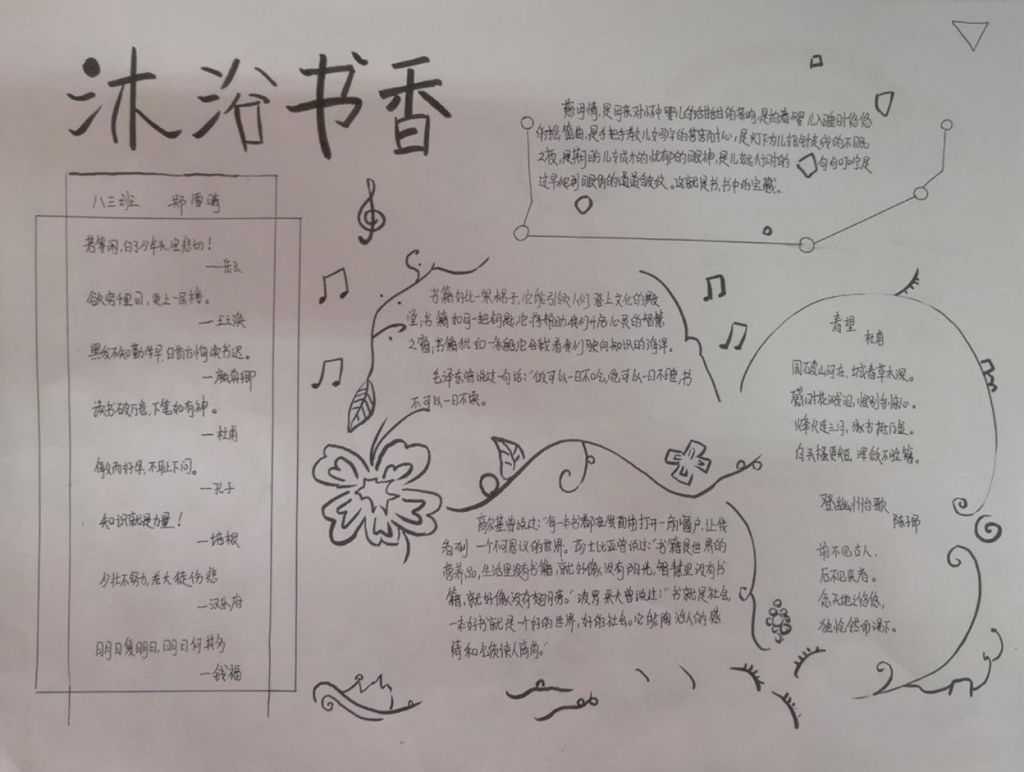 沐浴书香
八三班 郑雪鸿
若等闲,白了少年头,空悲切!
—岳云
欲穷千里目,更上一层楼。
—王之涣
黑发不知勤学早,白首方悔读书迟。
—颜真卿
读书破万卷,下笔如有神。
—杜甫
敏而好学,不耻下问。
—孔子
知识就是力量!
—培根
少壮不努力,老大徒伤悲
—汉乐府
明日复明日,明日何其多
—钱福
慈母情,是母亲对怀中婴儿的甜甜的
的摇篮曲,是手把手教儿女写字的苦苦耐心,是灯下为儿拈针走线的不眠
之夜,是期盼儿女成才的忧郁的眼神,是儿女远行时的一句句叮咛是
过早爬到眼角的道道皱纹。这就是书,书中的宝藏。
书籍好比一架梯子,它能引领人们登上文化的殿
堂;书籍如同一把钥匙,它将帮助我们开启心灵的智慧
之窗;书籍犹如一条船,它会载着我们驶向知识的海洋。
毛泽东曾说过一句话:“饭可以一日不吃,觉可以一日不睡,书
不可以一日不读。
高尔基曾说过:“每一本书都在我面前打开一扇窗户,让我
看到一个不可思议的世界。莎士比亚曾说过:“书籍是世界的
营养品,生活里没有书籍,就好像没有阳光,智慧里没有书
籍,就好像没有翅膀。”波罗果夫曾说过:“书就是社会,
一本好书就是一个好的世界,好的社会。它能陶冶人的感
情和气质使人高尚。”
春望
杜甫
国破山河在,城春草木深。
感时花溅泪,恨别鸟惊心。
烽火连三月,家书抵万金。
白头搔更短,浑欲不胜簪。
登幽州台歌
陈子昂
前不见古人,
后不见来者。
念天地之悠悠,
独怆然而涕下。